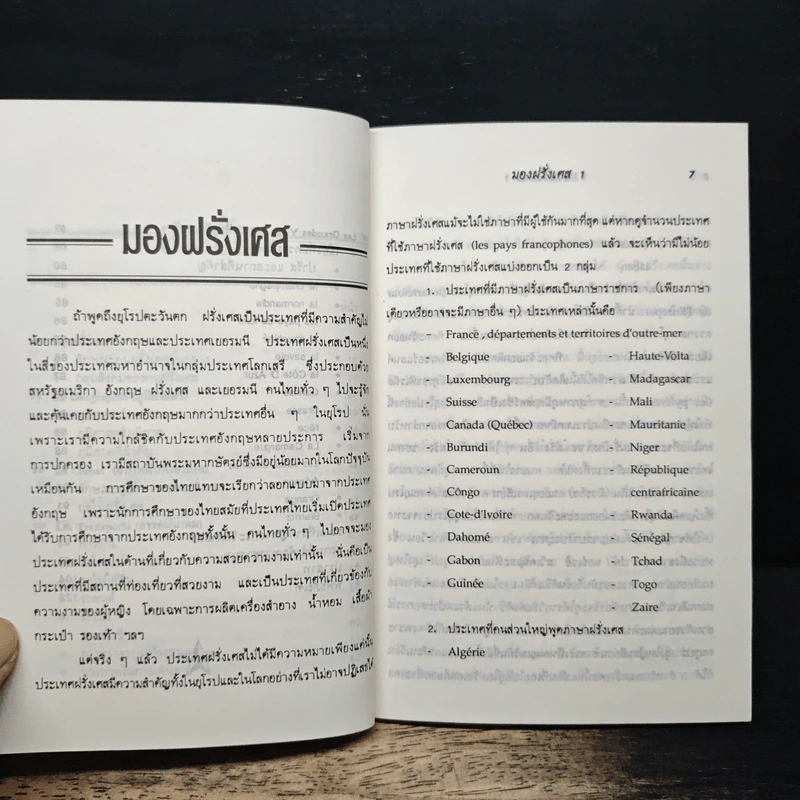 มองฝรั่งเศส
ถ้าพูดถึงยุโรปตะวันตก ฝรั่งเศสเป็นประเทศที่มีความสำคัญไม่
น้อยกว่าประเทศอังกฤษและประเทศเยอรมนี ประเทศฝรั่งเศสเป็นหนึ่ง
ในสี่ของประเทศมหาอำนาจในกลุ่มประเทศโลกเสรี ซึ่งประกอบด้วย
สหรัฐอเมริกา อังกฤษ ฝรั่งเศส และเยอรมนี คนไทยทั่ว ๆ ไปจะรู้จัก
และคุ้นเคยกับประเทศอังกฤษมากกว่าประเทศอื่น ๆ ในยุโรป นั่น
เพราะเรามีความใกล้ชิดกับประเทศอังกฤษหลายประการ เริ่มจาก
การปกครอง เรามีสถาบันพระมหากษัตริย์ซึ่งมีอยู่น้อยมากในโลกปัจจุบัน
เหมือนกัน การศึกษาของไทยแทบจะเรียกว่าลอกแบบมาจากประเทศ
อังกฤษ เพราะนักการศึกษาของไทยสมัยที่ประเทศไทยเริ่มเปิดประเทศ
ได้รับการศึกษาจากประเทศอังกฤษทั้งนั้น คนไทยทั่ว ๆ ไปอาจจะมอง
ประเทศฝรั่งเศสในด้านที่เกี่ยวกับความสวยความงามเท่านั้น นั่นคือเป็น
ประเทศที่มีสถานที่ท่องเที่ยวที่สวยงาม และเป็นประเทศที่เกี่ยวข้องกับ
ความงามของผู้หญิง โดยเฉพาะการผลิตเครื่องสำอาง น้ำหอม เสื้อผ้า
กระเป๋า รองเท้า ฯลฯ
แต่จริง ๆ แล้ว ประเทศฝรั่งเศสไม่ได้มีความหมายเพียงแค่นั้น
ประเทศฝรั่งเศสมีความสำคัญทั้งในยุโรปและในโลกอย่างที่เราไม่อาจปฏิเสธได้
มองฝรั่งเศส 1 7
ภาษาฝรั่งเศสแม้จะไม่ใช่ภาษาที่มีผู้ใช้กันมากที่สุด แต่หากดูจำนวนประเทศ
ที่ใช้ภาษาฝรั่งเศส (les pays francophones) แล้ว จะเห็นว่ามีไม่น้อย
ประเทศที่ใช้ภาษาฝรั่งเศสแบ่งออกเป็น 2 กลุ่ม
1. ประเทศที่มีภาษาฝรั่งเศสเป็นภาษาราชการ (เพียงภาษา
เดียวหรืออาจจะมีภาษาอื่น ๆ) ประเทศเหล่านั้นคือ
- France , départements et territoires d'outre-mer
- Belgique - Haute-Volta
- Luxembourg - Madagascar
- Suisse - Mali
- Canada (Québec) - Mauritanie
- Burundi - Niger
- Cameroun - République
- Côngo centrafricaine
- Cote-d'Ivoire - Rwanda
- Dahomé - Sénégal
- Gabon - Tchad
- Guinée - Togo
- Zaire
2. ประเทศที่คนส่วนใหญ่พูดภาษาฝรั่งเศส
- Algérie